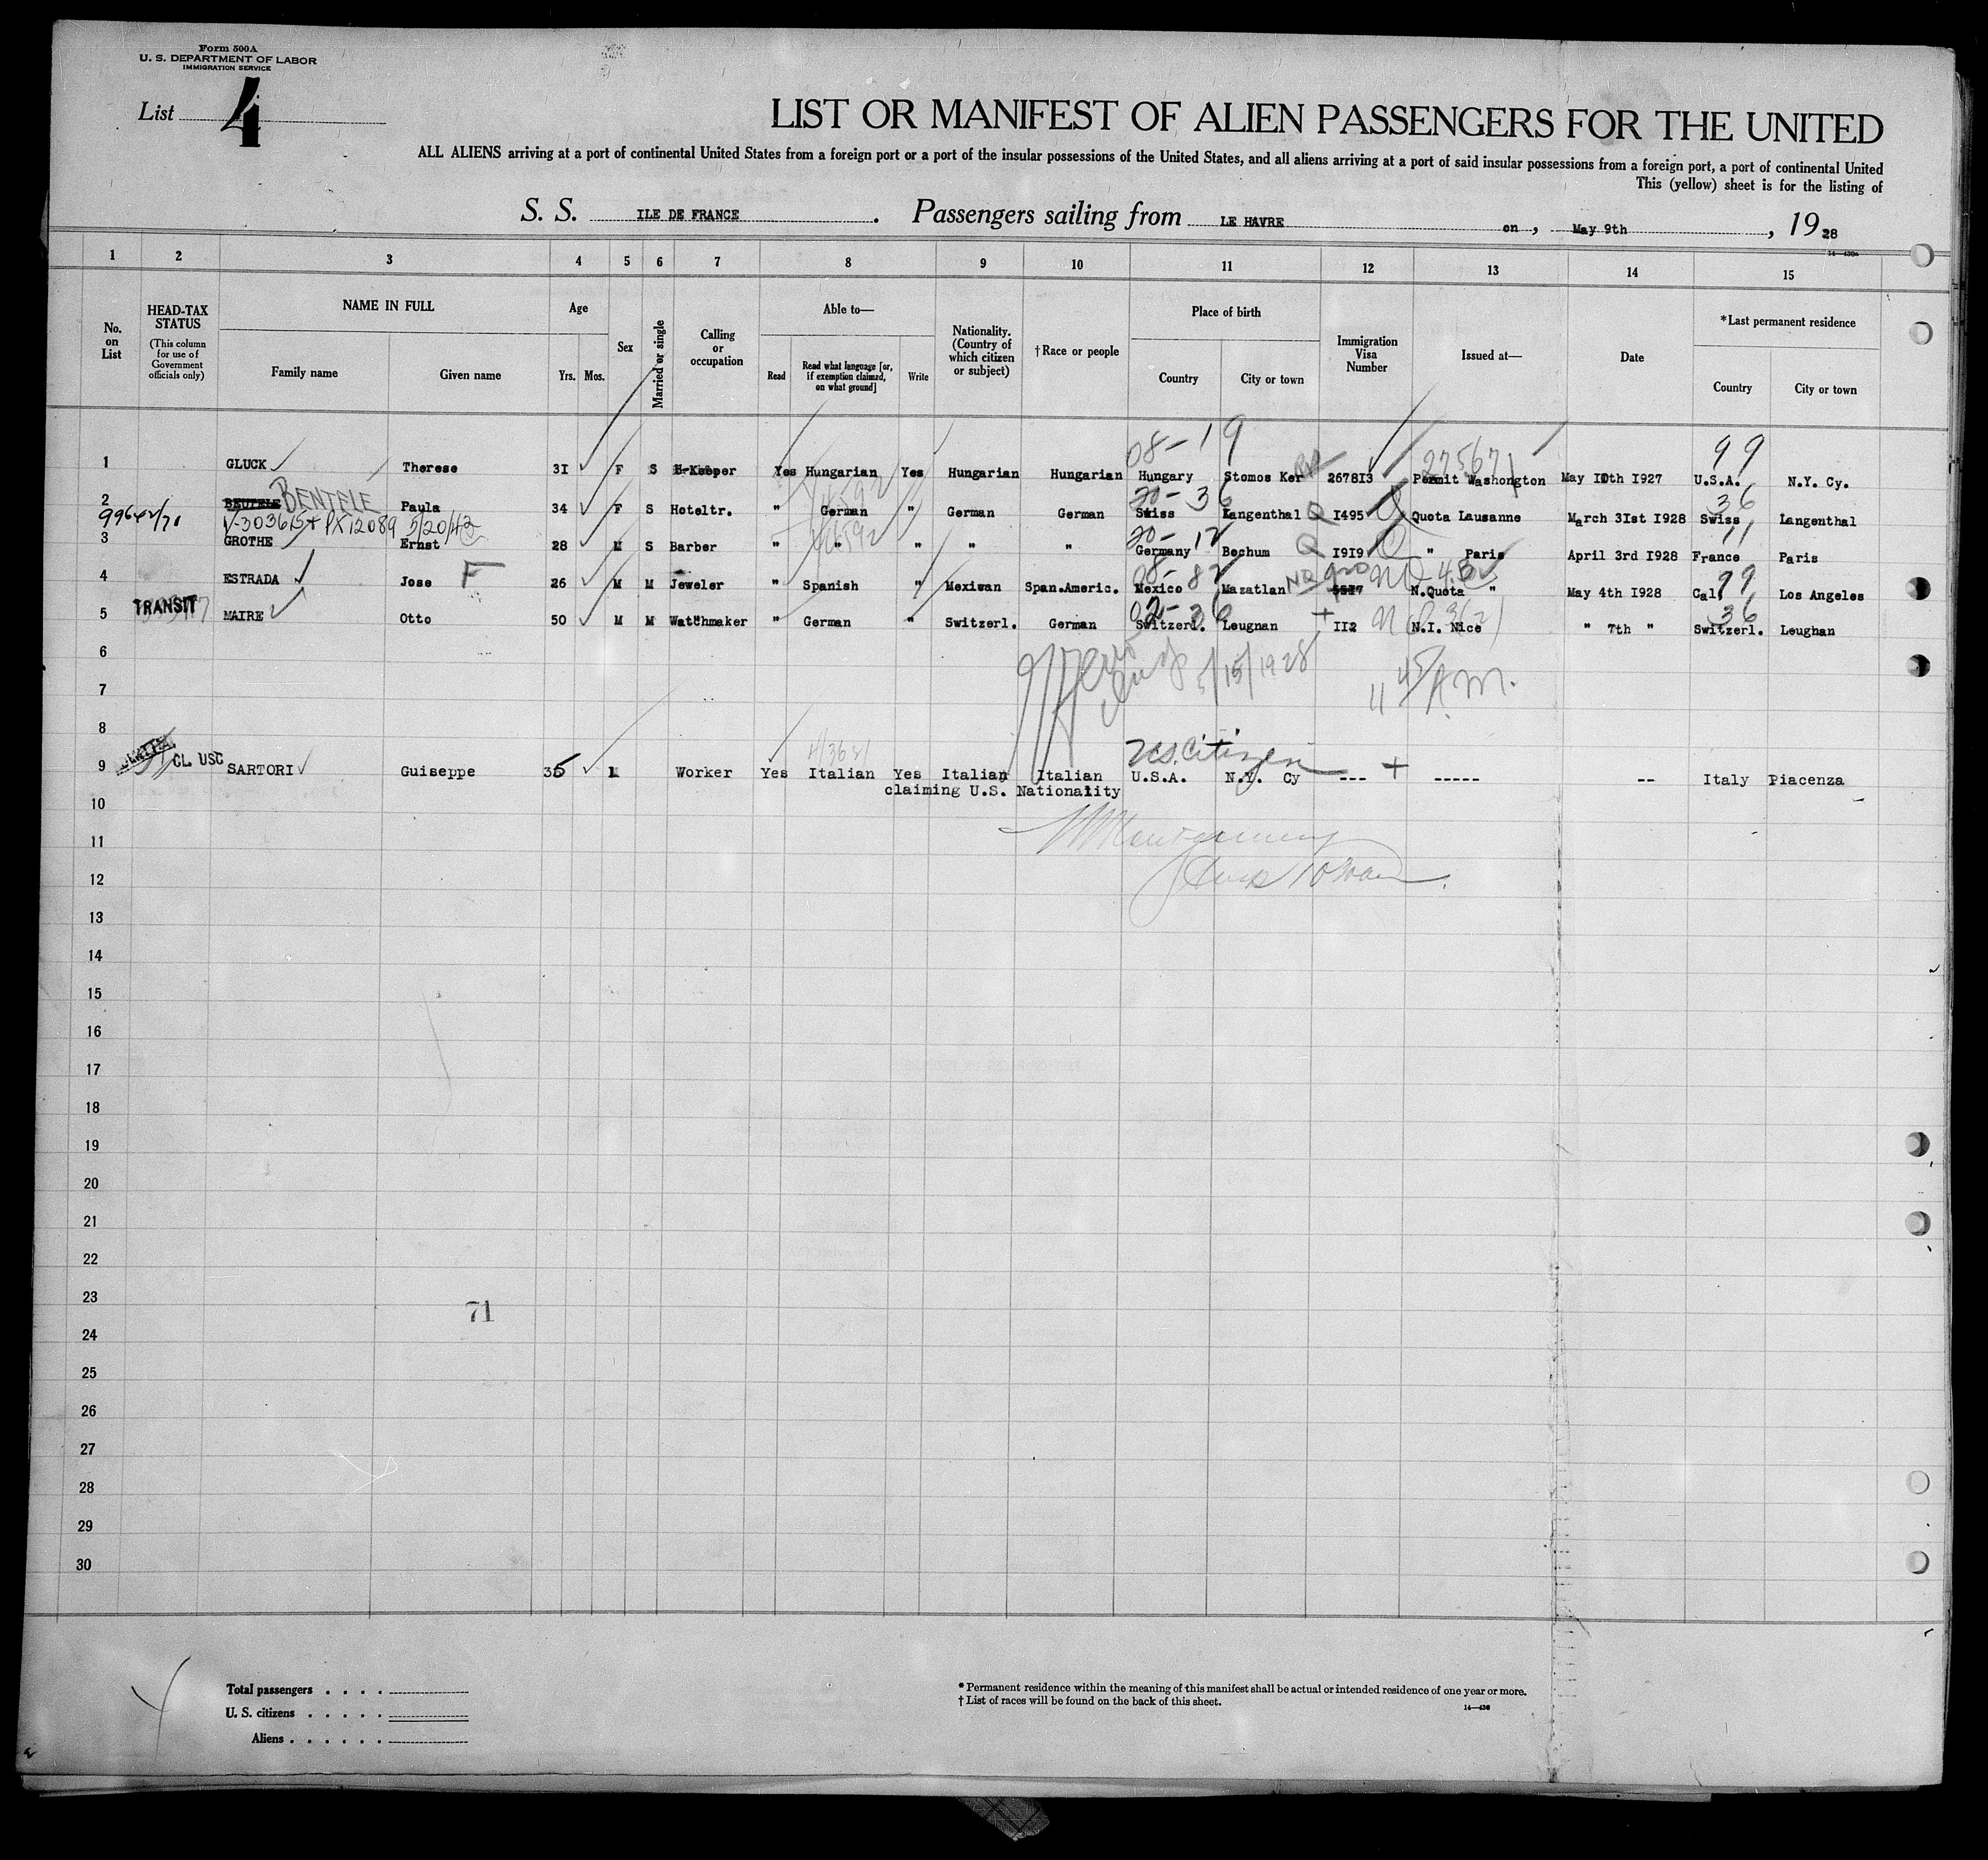 Form 500A
U. S. DEPARTMENT OF LABOR
IMMIGRATION SERVICE
List 4
LIST OR MANIFEST OF ALIEN PASSENGERS FOR THE UNITED
ALL ALIENS arriving at a port of continental United States from a foreign port or a port of the insular possessions of the United States, and all aliens arriving at a port of said insular possessions from a foreign port, a port of continental United
This (yellow) sheet is for the listing of
S. S. ILE DE FRANCE. Passengers sailing from LE HAVRE on, May 9th, 1928
14—430a
1 2 3 4 5 6 7 8 9 10 11 12 13 14 15
No. on List
HEAD-TAX STATUS
(This column for use of Government officials only)
NAME IN FULL
Family name Given name
Age
Yrs. Mos.
Sex
Married or single
Calling or occupation
Able to—
Read Read what language [or, if exemption claimed, on what ground] Write
Nationality. (Country of which citizen or subject)
†Race or people
Place of birth
Country City or town
Immigration Visa Number
Issued at—
Date
*Last permanent residence
Country City or town
08-19 99
1 GLUCK Therese 31 F S H-Keeper Yes Hungarian Yes Hungarian Hungarian Hungary Stomos Ker 267813 Permit Washongton May 10th 1927 U.S.A. N.Y. Cy.
20-36 36
2 BEUTELE BENTELE Paula 34 F S Hoteltr. " German " German German Swiss Langenthal Q 1495 Quota Lausanne March 31st 1928 Swiss Langenthal
V-303615+ PX12089 5/20/43
20-12 11
3 GROTHE Ernst 28 M S Barber " " " " " Germany Bochum Q 1919 " Paris April 3rd 1928 France Paris
08-82 99
4 ESTRADA Jose F 26 M M Jeweler " Spanish " Mexican Span.Americ. Mexico Mazatlan N.Quota " May 4th 1928 Cal. Los Angeles
02-36 36
5 TRANSIT MAIRE Otto 50 M M Watchmaker " German " Switzerl. German Switzerl. Leugnan + 112 N.I. Nice " 7th " Switzerl. Leughan
6
5/15/1928 11 45/A.M.
7
8
U.S. Citizen
9 CL. USC SARTORI Guiseppe 35 Worker Yes Italian Yes Italian Italian U.S.A. N.Y. Cy --- + ----- -- Italy Piacenza
claiming U.S. Nationality
10
11
12
13
14
15
16
17
18
19
20
21
22
23
71
24
25
26
27
28
29
30
Total passengers . . . .
U. S. citizens . . . . .
Aliens . . . . . .
* Permanent residence within the meaning of this manifest shall be actual or intended residence of one year or more.
† List of races will be found on the back of this sheet.
14—430